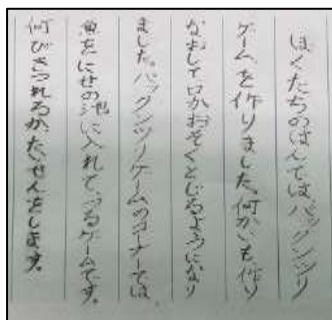 ぼくたちのはんでは、パックンツリ
ゲームを作りました。何かいも、作り
なおして口がおそくとじるようになり
ました。パックンツリゲームのコーナーでは、
魚をにせの池に入れて、つるゲームです。
何びきつれるかたいせんをします。